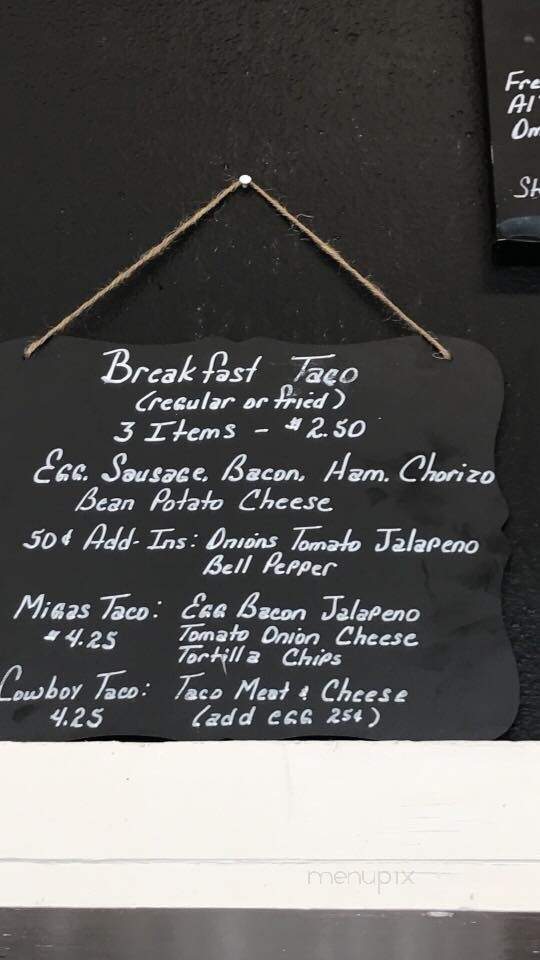 Fre
Al
Om
Sh
Breakfast Taco
(regular or fried)
3 Items - $2.50
Egg, Sausage, Bacon, Ham, Chorizo
Bean Potato Cheese
50¢ Add-Ins: Onions Tomato Jalapeno
Bell Pepper
Migas Taco: Egg Bacon Jalapeno
$4.25 Tomato Onion Cheese
Tortilla Chips
Cowboy Taco: Taco Meat & Cheese
4.25 (add egg 25¢)
menupix